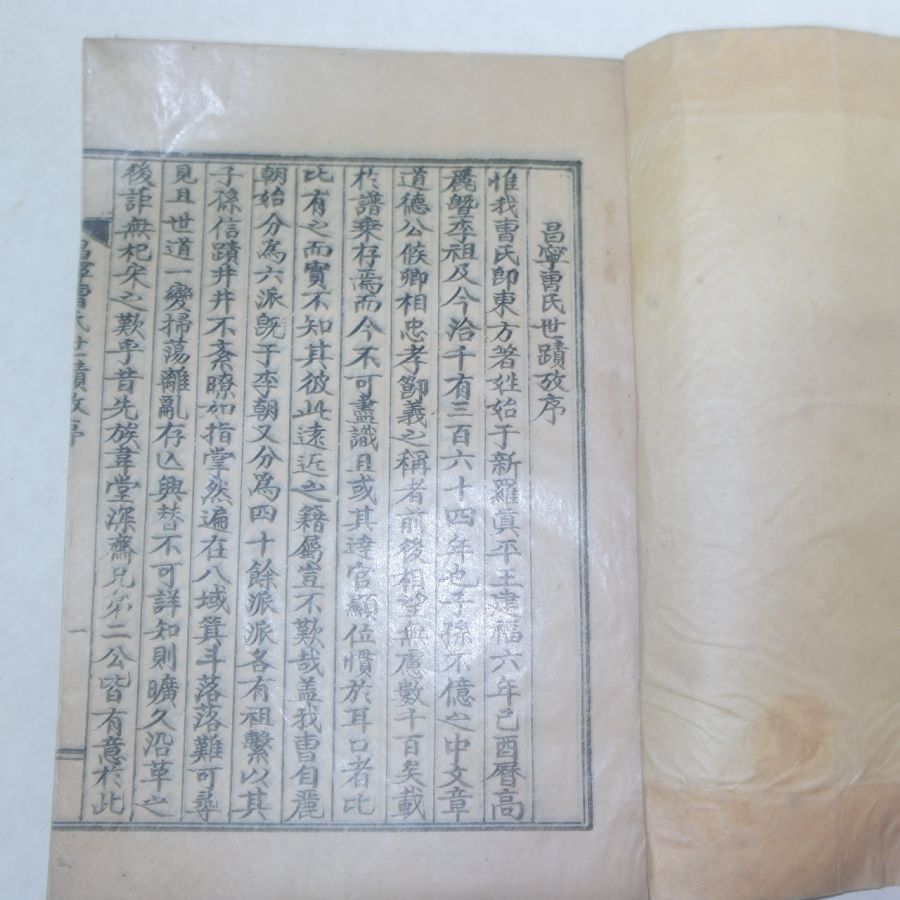 昌寧曺氏世蹟攷序
惟我曺氏卽東方著姓始于新羅眞平王建福六年己酉曆高
麗曁李祖及今洽千有三百六十四年也子孫不億之中文章
道德公候卿相忠孝節義之稱者前後相望無慮數千百矣載
於譜乘存焉而今不可盡識且或其達官顯位慣於耳口者比
比有之而實不知其彼此遠近之籍屬豈不歎哉盖我曺自麗
朝始分為六派旣于李朝又分爲四十餘派派各有祖繫以其
子孫信蹟井井不紊瞭如指掌然遍在八域箕斗落落難可尋
見且世道一變掃蕩離亂存亡興替不可詳知則曠久沿革之
後詎無杞宋之歎乎昔先族韋堂深齋兄弟二公皆有意於此
昌寧曺氏世蹟攷序
一